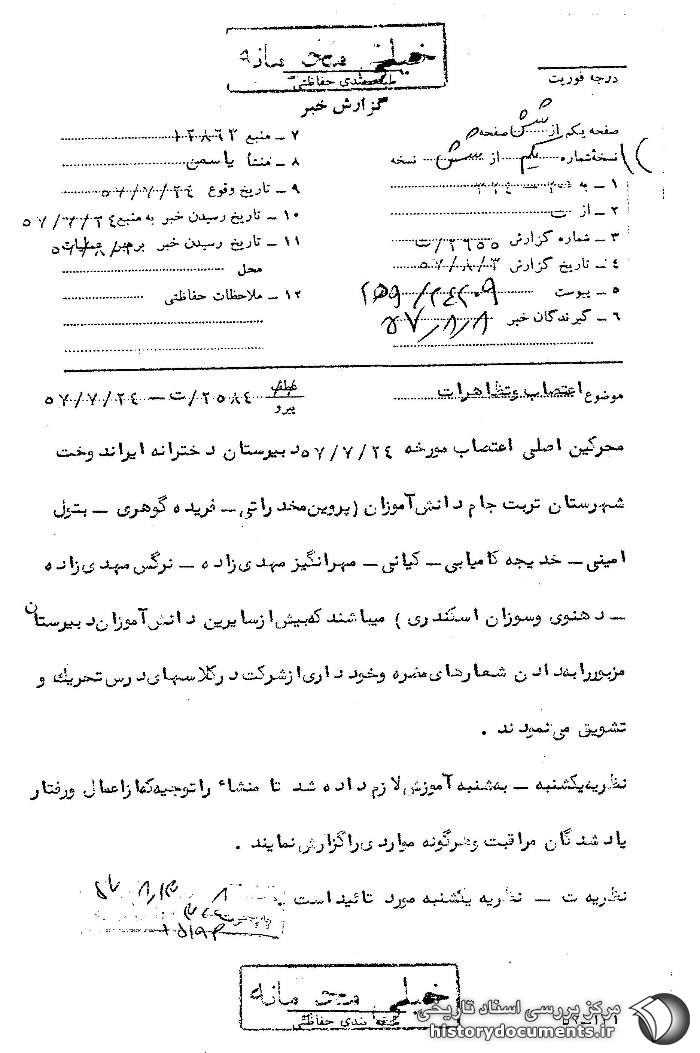 خیلی محرمانه
طبقه‌بندی حفاظتی
درجه فوریت
گزارش خبر
صفحه یکم از شش صفحه
نسخهٔ شماره یکم از شش نسخه
۱ ـ به ۳۲۴ ـ ۳۰۰
۲ ـ از ت
۳ ـ شماره گزارش ۲۶۵۵/ت
۴ ـ تاریخ گزارش ۵۷/۸/۳
۵ ـ پیوست
۶ ـ گیرندگان خبر
۵۷/۸/۸
۷ ـ منبع ۱۲۸۶۲
۸ ـ منشأ یاسمن
۹ ـ تاریخ وقوع ۵۷/۷/۲۴
۱۰ ـ تاریخ رسیدن خبر به منبع ۵۷/۷/۲۴
۱۱ ـ تاریخ رسیدن خبر برهبر عملیات
محل
۱۲ ـ ملاحظات حفاظتی
موضوع اعتصاب و تظاهرات
پیرو ۲۵۸۴/ت ـ ۵۷/۷/۲۴
محرکین اصلی اعتصاب مورخه ۵۷/۷/۲۴ دبیرستان دخترانه ایراندوخت
شهرستان تربت جام دانش‌آموزان (پروین مخدراتی ـ فریده گوهری ـ بتول
امینی ـ خدیجه کامیابی ـ کیانی ـ مهرانگیز مهدی‌زاده ـ نرگس مهدی‌زاده
ـ دهنوی و سوزان اسکندری) میباشند که بیش از سایرین دانش‌آموزان دبیرستان
مزبور را به دادن شعارهای مضره و خودداری از شرکت در کلاسهای درس تحریک و
تشویق می‌نمودند .
نظریه یکشنبه ـ به شنبه آموزش لازم داده شد تا منشاء را توجیه که از اعمال و رفتار
یادشدگان مراقبت و هرگونه مواردی را گزارش نمایند .
نظریه ت ـ نظریه یکشنبه مورد تائید است
خیلی محرمانه
طبقه بندی حفاظتی
مرکز بررسی اسناد تاریخی
historydocuments.ir